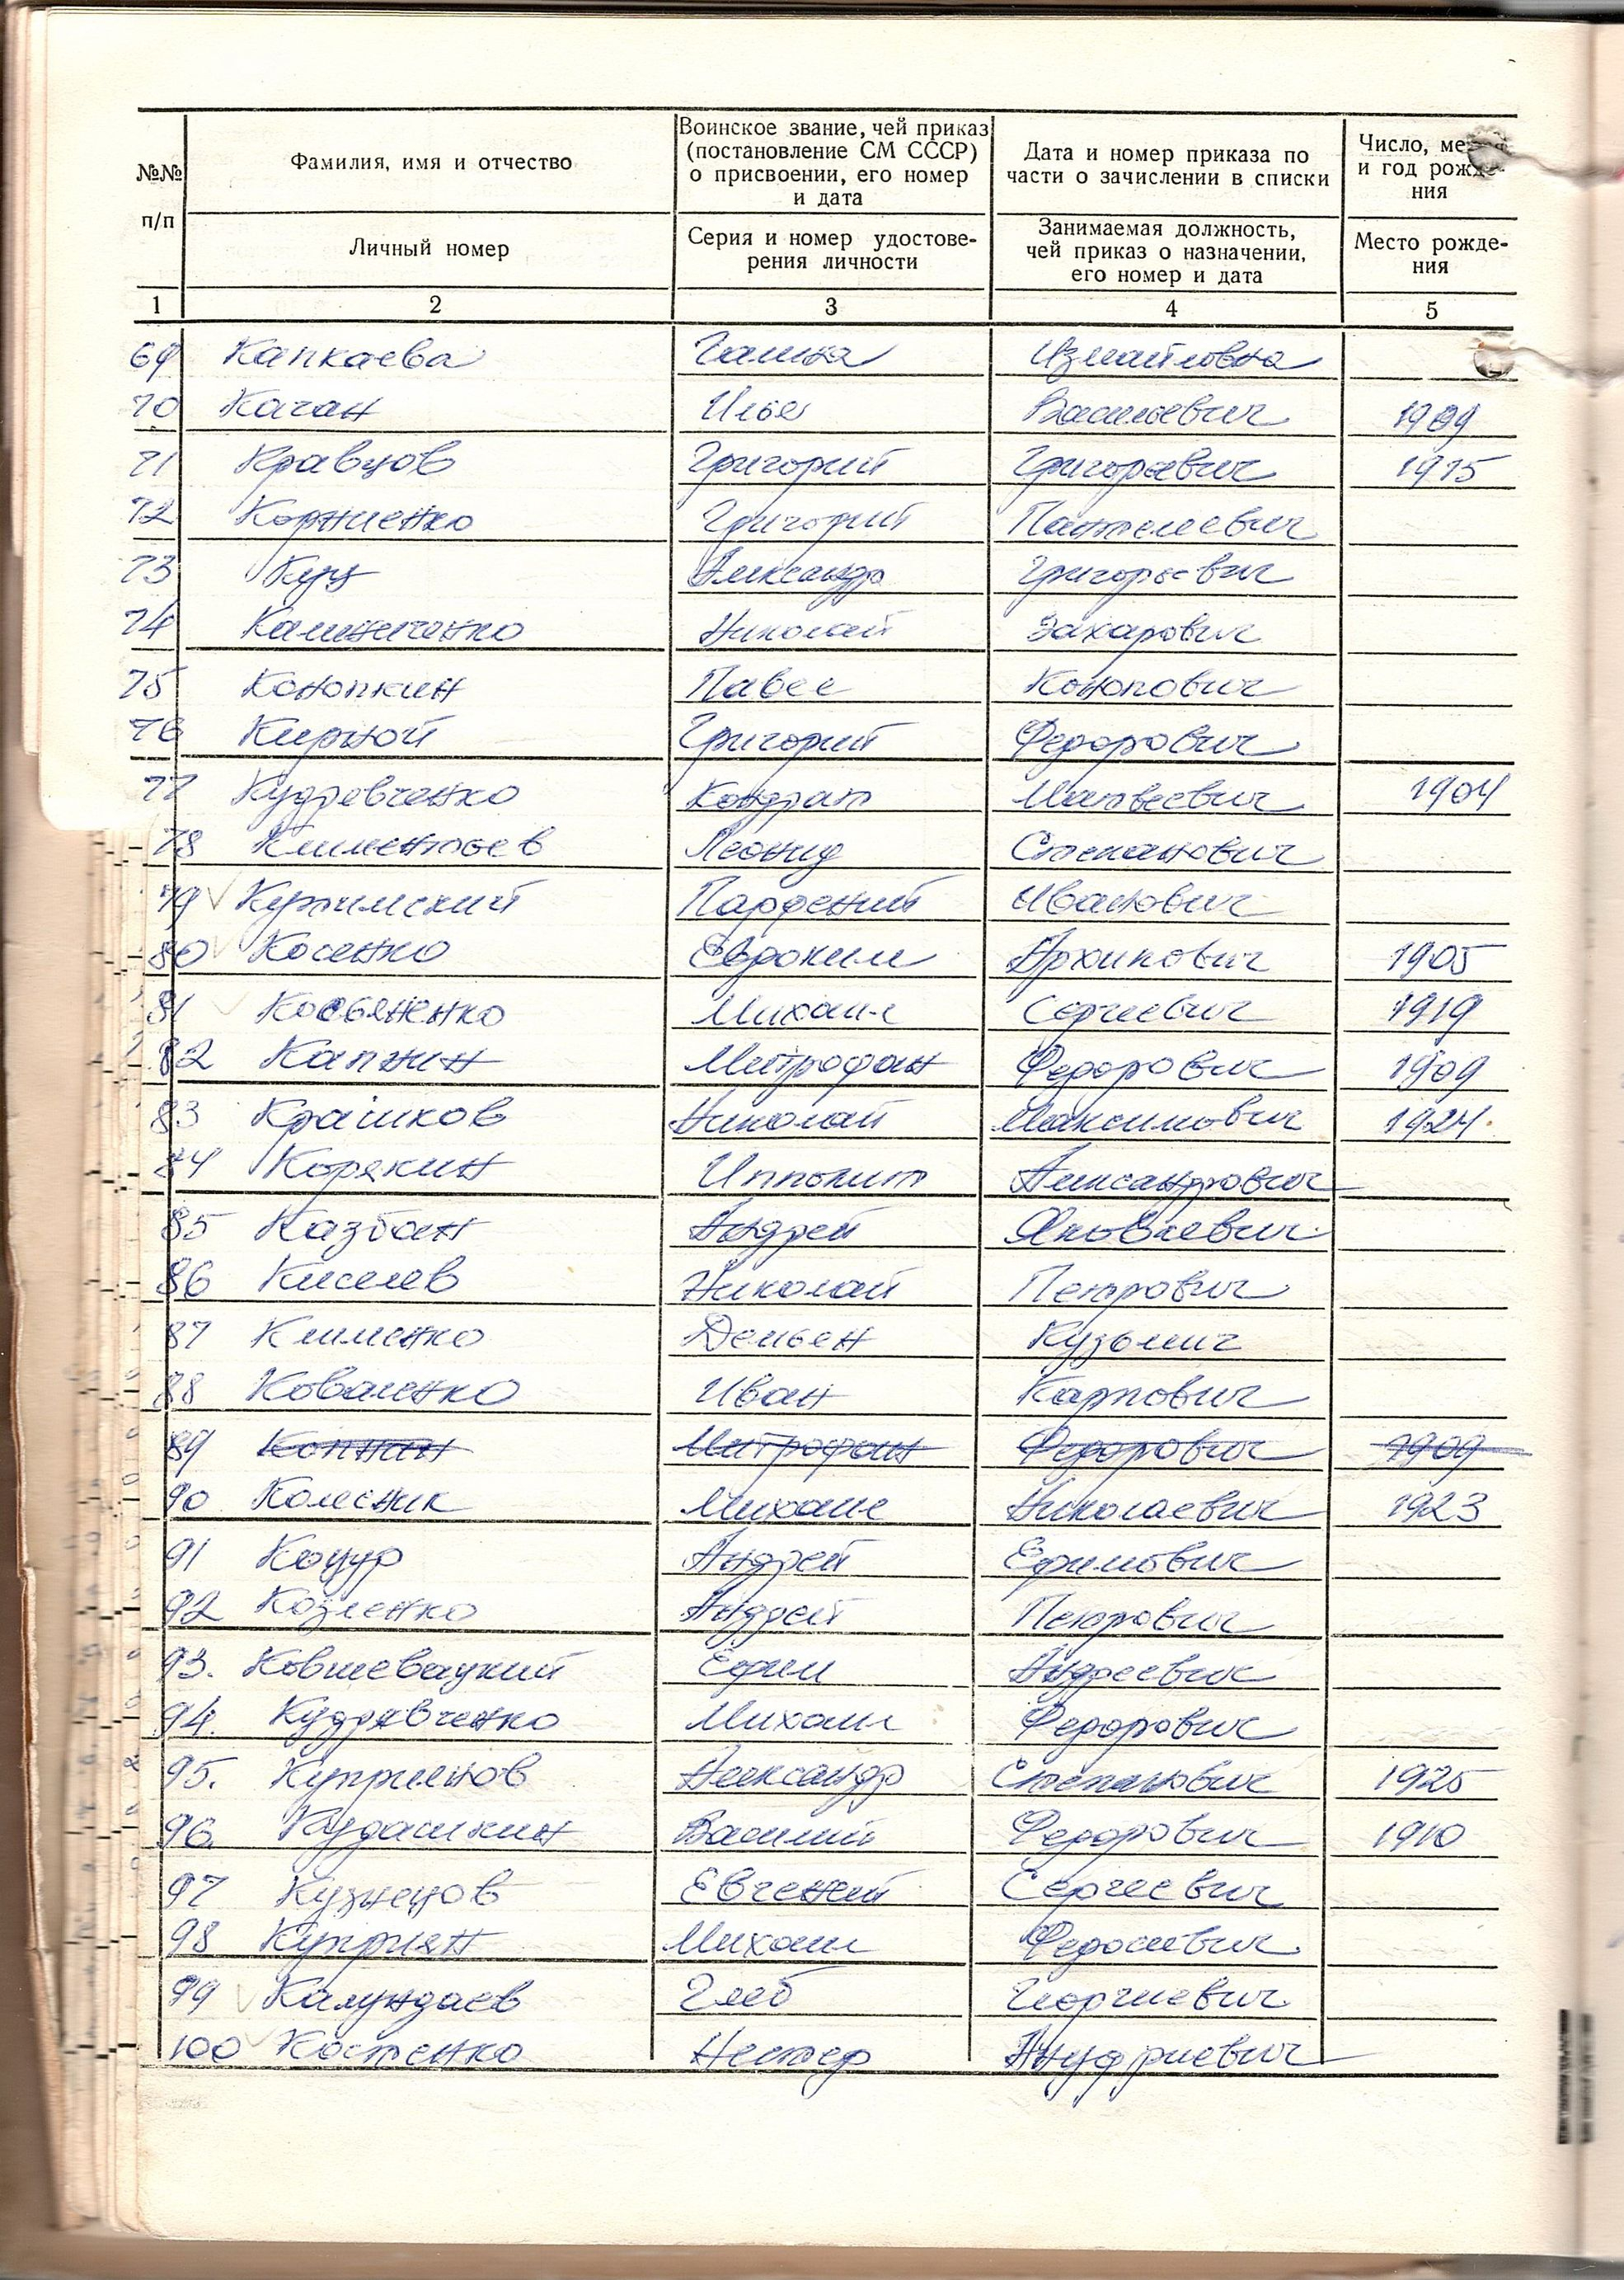 №№ п/п
Фамилия, имя и отчество
Воинское звание, чей приказ
(постановление СМ СССР)
о присвоении, его номер
и дата
Дата и номер приказа по
части о зачислении в списки
Число,
и год рожде-
ния
Личный номер
Серия и номер удостове-
рения личности
Занимаемая должность,
чей приказ о назначении,
его номер и дата
Место рожде-
ния
1 2 3 4 5
69 Капкаева Галина Измайловна
70 Качан Илья Васильевич 1909
71 Кравцов Григорий Григорьевич 1915
72 Корниенко Григорий Пантелеевич
73 Куц Александр Григорьевич
74 Калиниченко Николай Захарович
75 Конопкин Павел Конопович
76 Кирной Григорий Федорович
77 Кудревченко Кондрат Матвеевич 1904
78 Климентьев Леонид Степанович
79 Парфений Иванович
80 Косенко Евдоким Архипович 1905
81 Косьяненко Михаил Сергеевич 1919
82 Капнин Митрофан Федорович 1909
83 Крашков Николай Максимович 1924.
84 Корякин Ипполит Александрович
85 Казбан Андрей Яковлевич
86 Киселев Николай Петрович
87 Клименко Демьян Кузьмич
88 Коваленко Иван Карпович
89 Копнин Митрофан Федорович 1909
90 Колесник Михаил Николаевич 1923
91 Коцур Андрей Ефимович
92 Козленко Андрей Петрович
93. Ковшевацкий Ефим Андреевич
94. Кудрявченко Михаил Федорович
95. Куприянов Александр Степанович 1925
96. Кудашкин Василий Федорович 1910
97 Кузнецов Евгений Сергеевич
98 Куприян Михаил Федосеевич
99 Калундаев Глеб Георгиевич
100 Костенко Нестер Ануфриевич